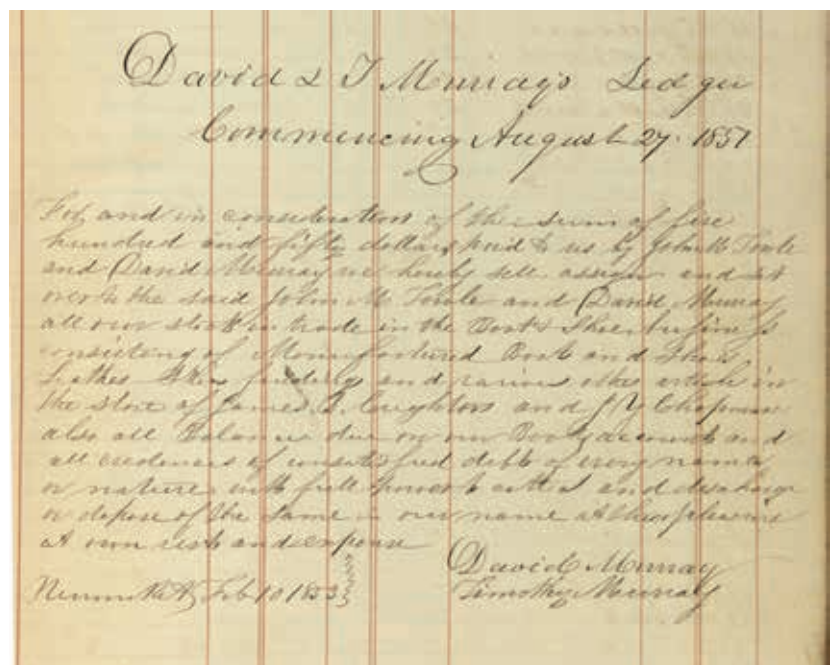 David & T Murray's Ledger
Commencing August 27. 1851
For and in consideration of the sum of five
hundred and fifty dollars paid to us by John M Towle
and David Murray we hereby sell assign and set
over to the said John M Towle and David Murray
all our stock in trade in the Boot & Shoe business
consisting of Manufactured Boots and Shoes
Leather findings and various other article in
the store of James B. Creighton and J Y Chapman
also all Balances due on our Book accounts and
all evidences of unsatisfied debts of every name
or nature with full power to collect and discharge
or dispose of the same in our name at their pleasure
at own risk and expense
David Murray
Feb 10 1853
Timothy Murray